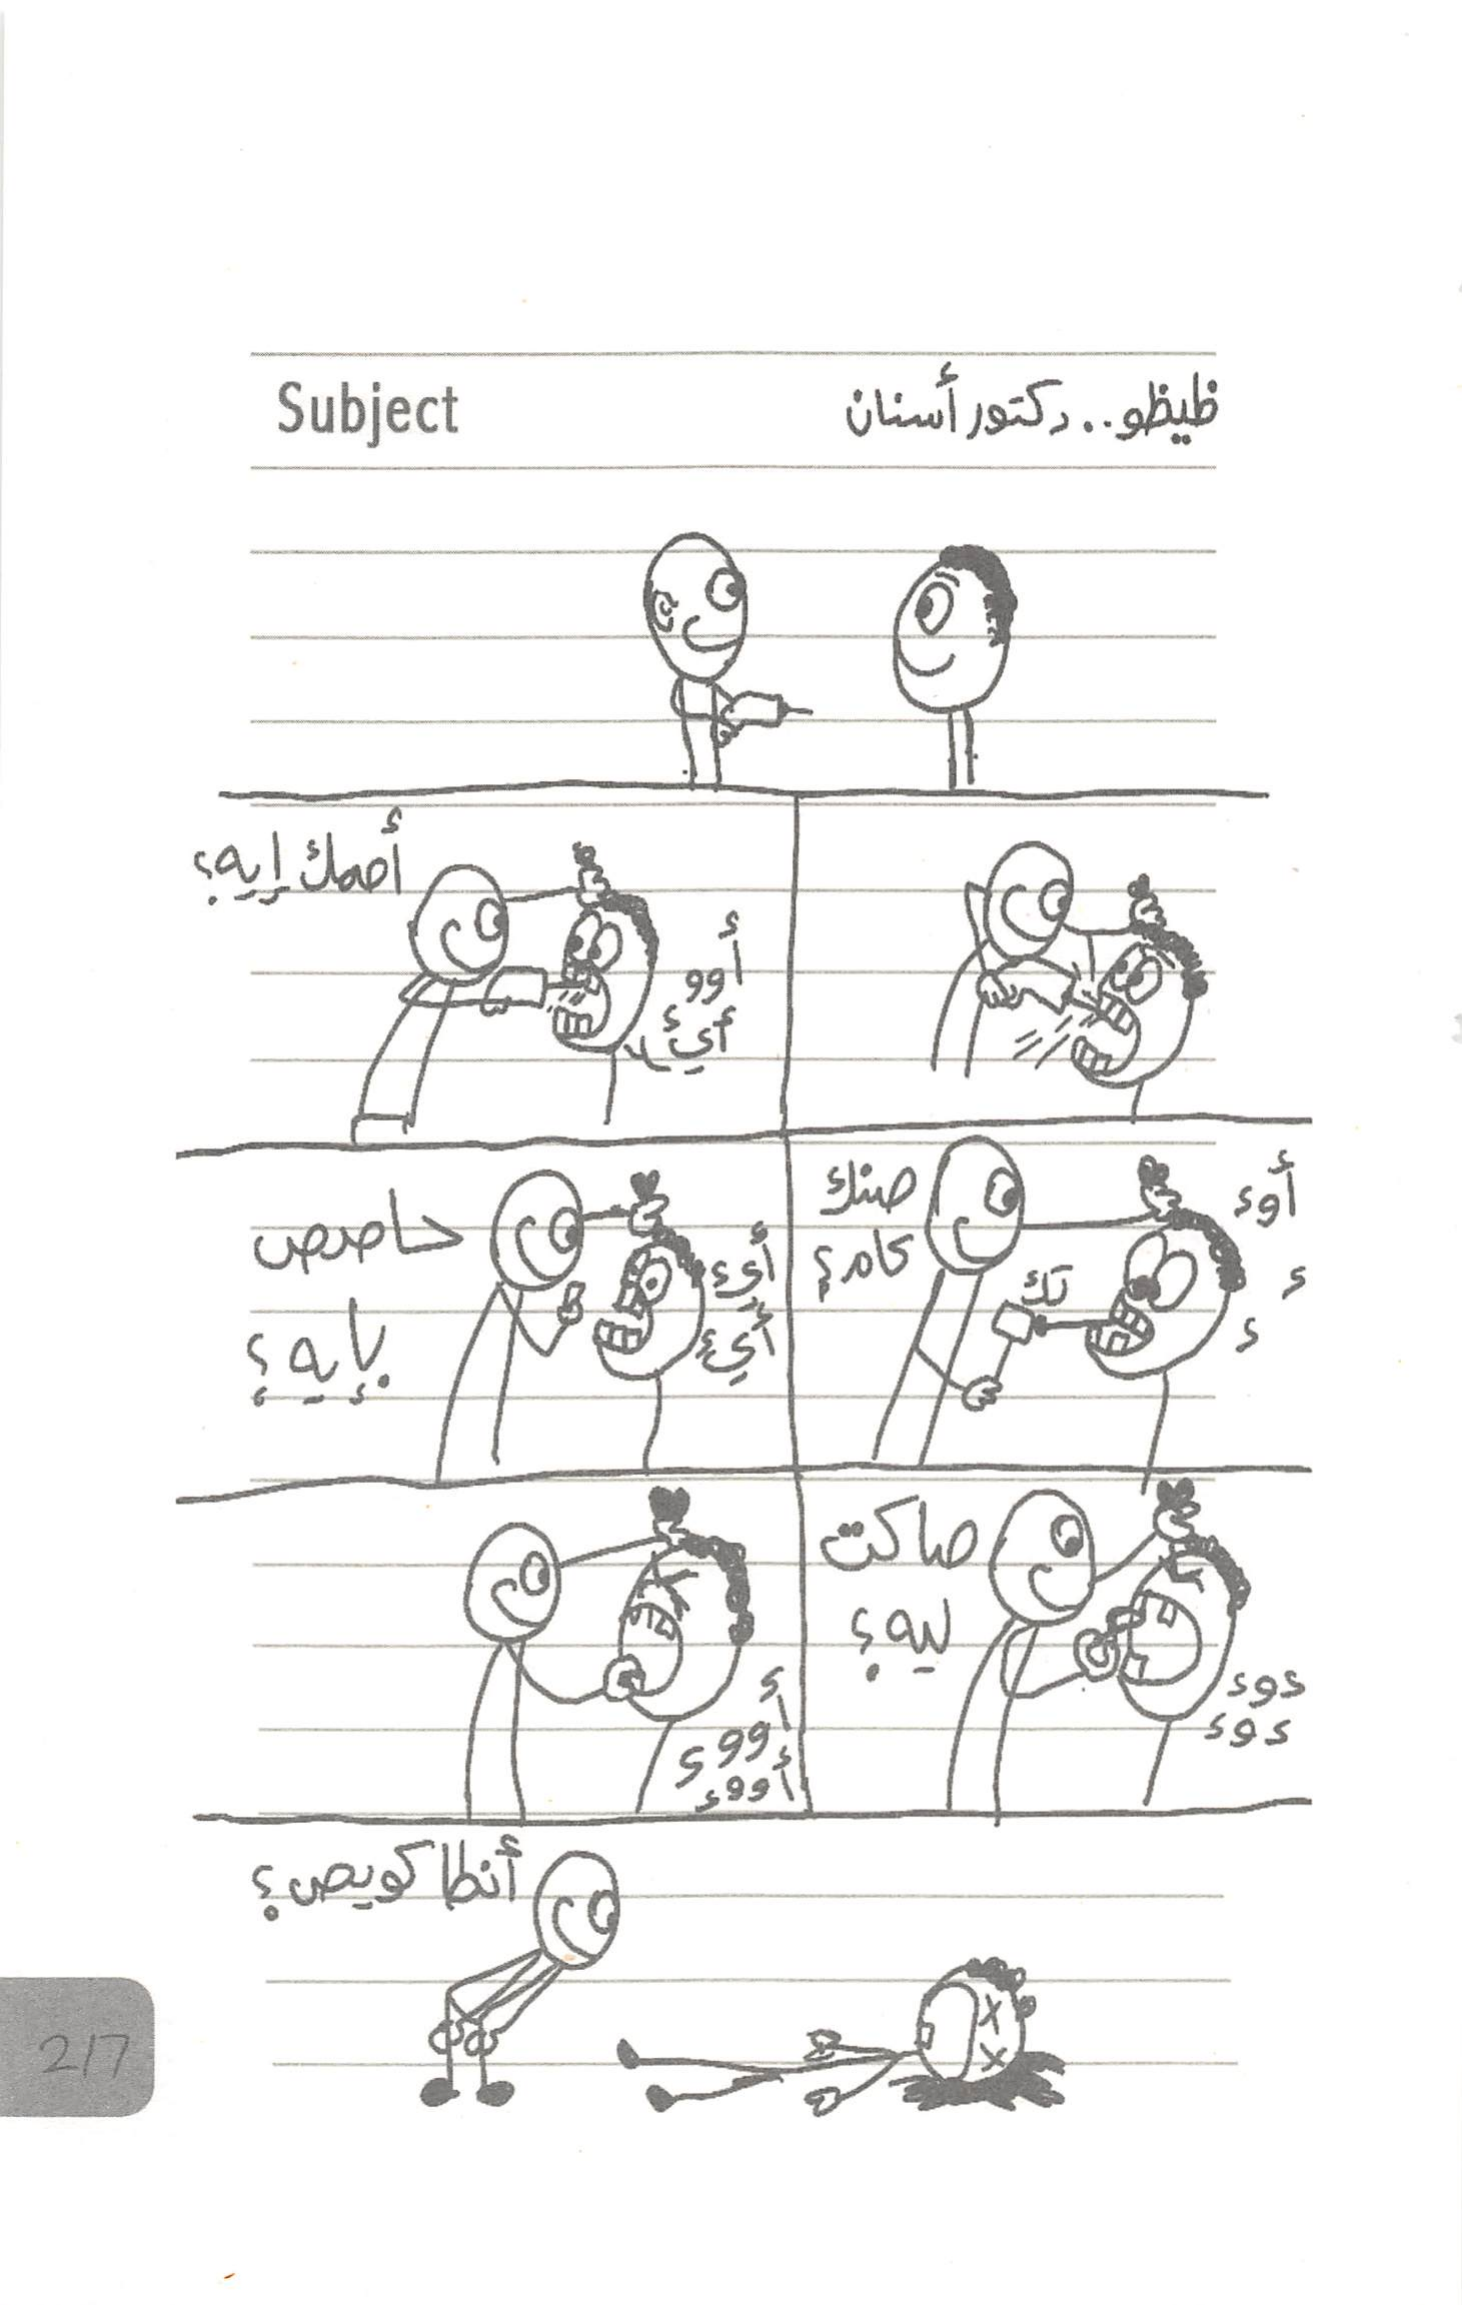 Subject
ظيظو.. دكتور أسنان
أصمك إيه؟
أوو
أيء
أوء
ء
ء
صنك
كام؟
تك
حاصص
بإيه؟
أيء
أيء
صاكت
ليه؟
ءوء
ءوء
أووء
أووء
أنطا كويص؟
217